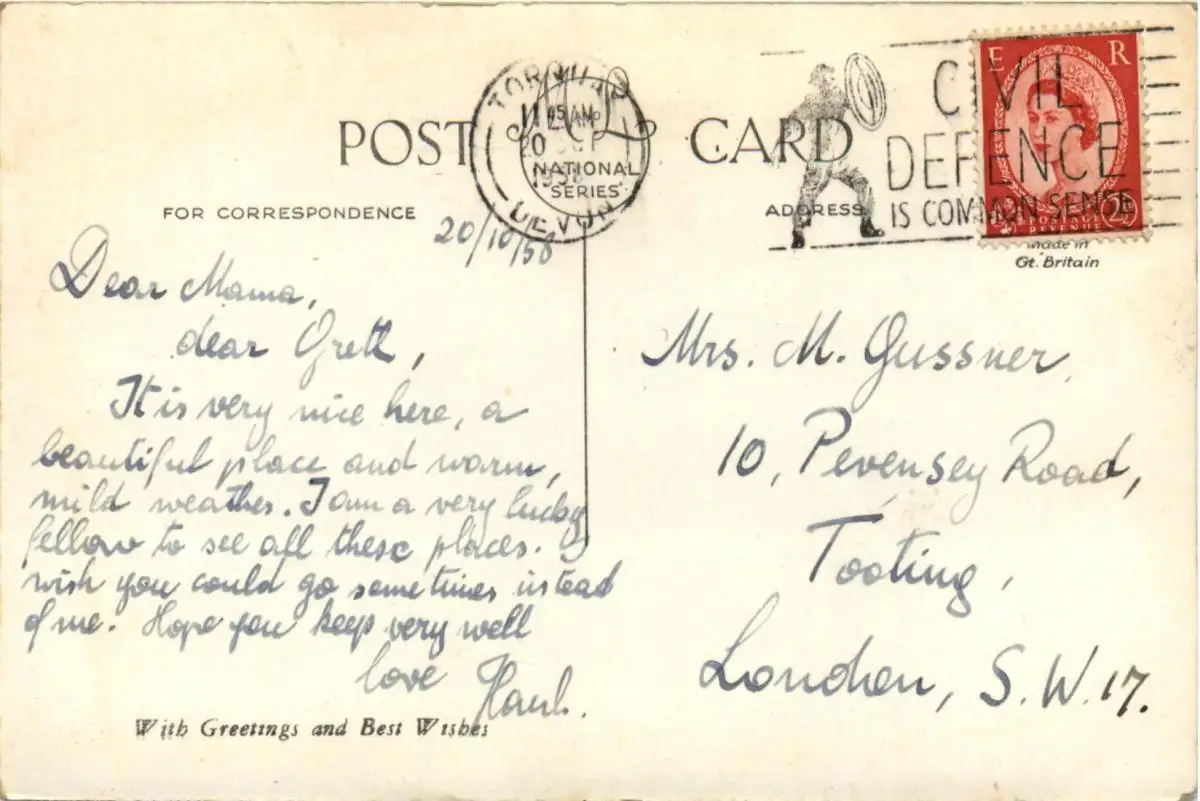 POST CARD
TORQUAY
11 45 AM
20 OCT
1958
DEVON
NATIONAL
SERIES
CIVIL
DEFENCE
IS COMMON SENSE
E R
POSTAGE
REVENUE
FOR CORRESPONDENCE
ADDRESS
Made in
Gt. Britain
20/10/58
Dear Mama,
dear Greth,
It is very nice here, a
beautiful place and warm,
mild weather. I am a very lucky
fellow to see all these places. I
wish you could go sometimes instead
of me. Hope you keep very well
love
With Greetings and Best Wishes
Mrs. M. Gussner,
10, Pevensey Road,
Tooting,
London, S.W.17.